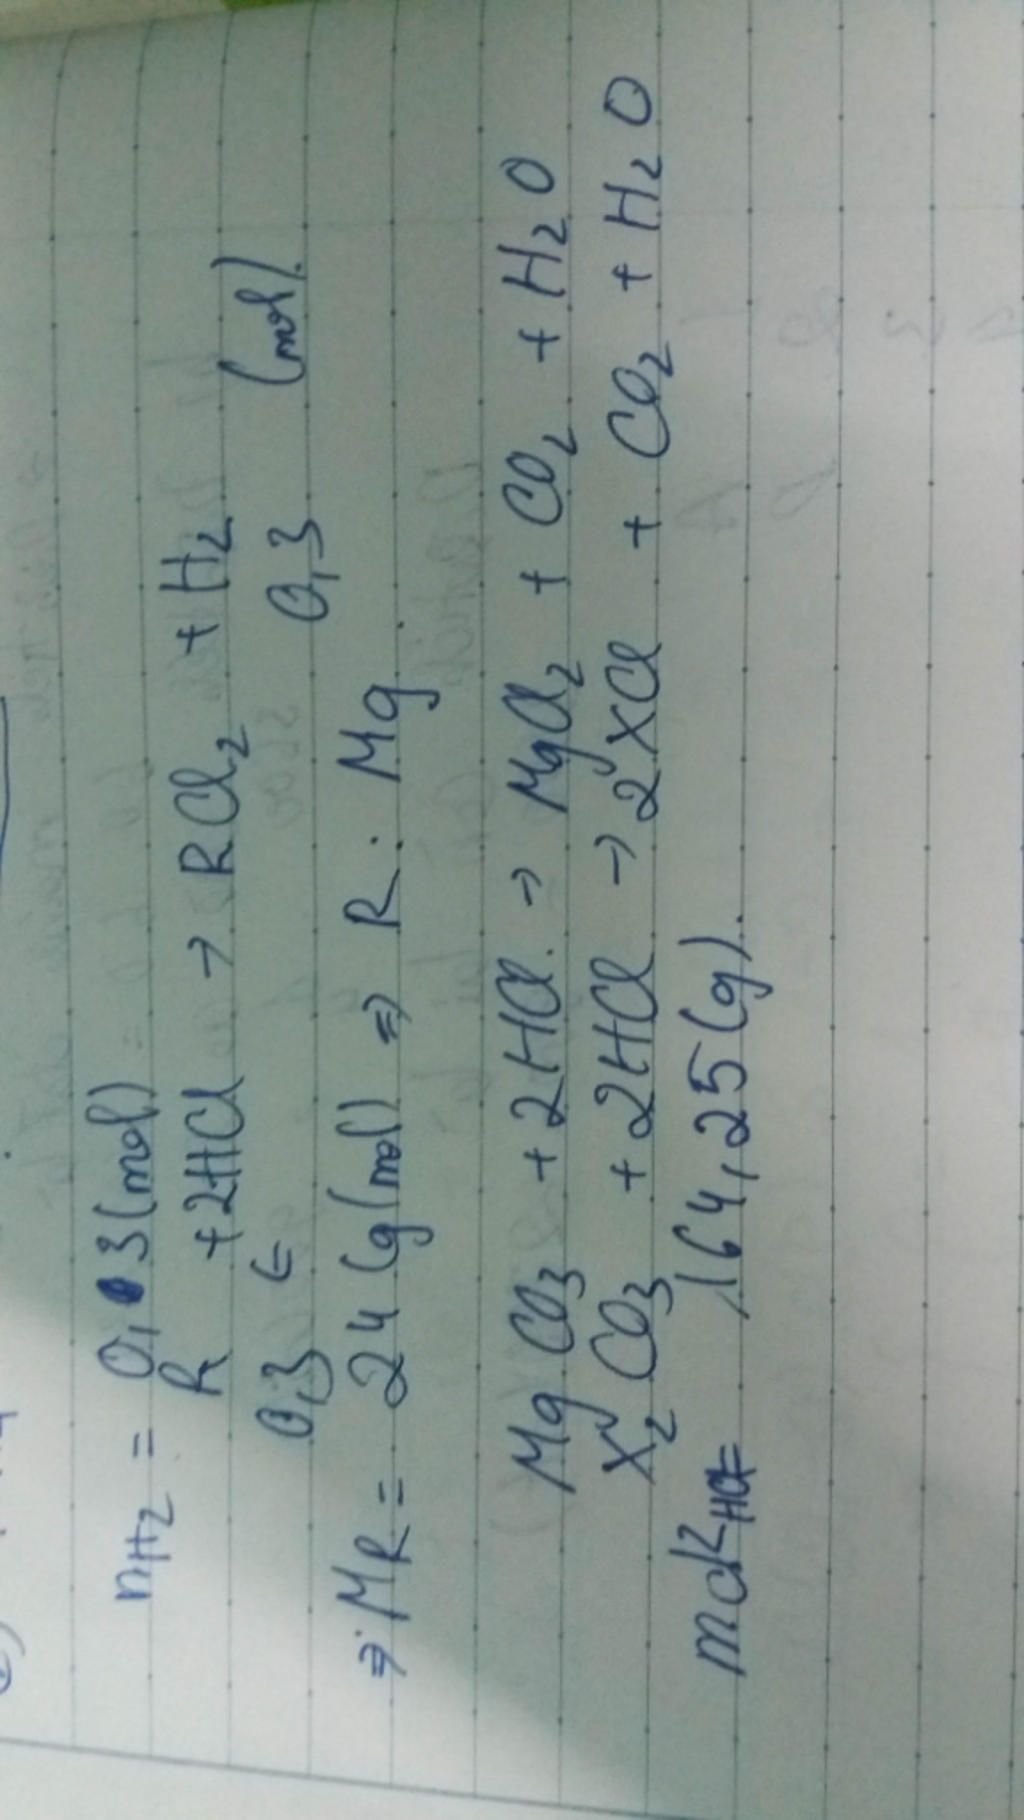 nH2 = 0,3 (mol)
R + 2HCl → RCl2 + H2
0,3 ← 0,3 (mol).
⇒ MR = 24 (g/mol) ⇒ R: Mg.
MgCO3 + 2HCl → MgCl2 + CO2 + H2O
X2CO3 + 2HCl → 2XCl + CO2 + H2O
HCl = 164,25 (g).